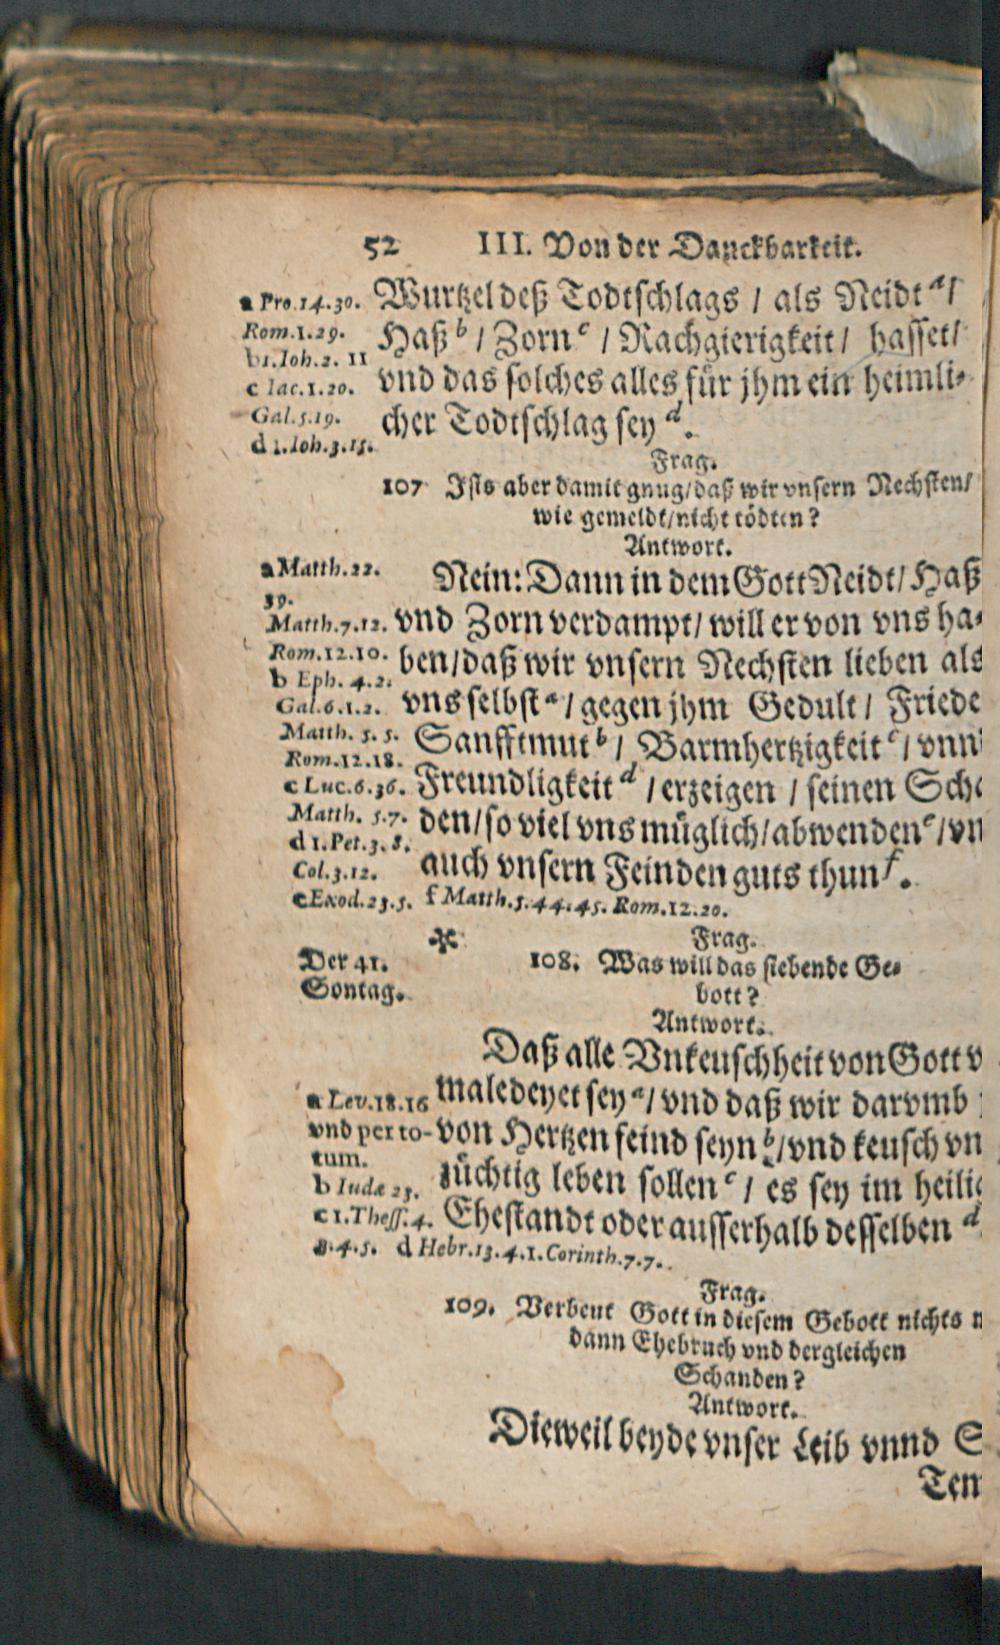 52 III. Von der Danckbarkeit.
a Pro.14.30.
Rom.1.29.
b 1.Ioh.2. 11
c Iac.1.20.
Gal.5.19.
d 1.Ioh.3.15.
Wurtzel deß Todtschlags / als Neidt a /
Haß b / Zorn c / Rachgierigkeit / hasset /
vnd das solches alles für jhm ein heimli-
cher Todtschlag sey d.
Frag.
107 Ists aber damit gnug / daß wir vnsern Nechsten /
wie gemeldt / nicht tödten?
Antwort.
a Matth.22.
39.
Matth.7.12.
Rom.12.10.
b Eph. 4.2.
Gal.6.1.2.
Matth. 5.5.
Rom.12.18.
c Luc.6.36.
Matth. 5.7.
d 1.Pet.3.8.
Col.3.12.
e Exod.23.5. f Matth.5.44.45. Rom.12.20.
Nein: Dann in dem Gott Neidt / Haß
vnd Zorn verdampt / will er von vns ha-
ben / daß wir vnsern Nechsten lieben als
vns selbst a / gegen jhm Gedult / Friede
Sanfftmut b / Barmhertzigkeit c / vnn
Freundligkeit d / erzeigen / seinen Scha
den / so viel vns müglich / abwenden e / vn
auch vnsern Feinden guts thun f.
Der 41.
Sontag.
Frag.
108. Was will das siebende Ge-
bott?
Antwort.
Daß alle Vnkeuschheit von Gott v
a Lev.18.16
vnd per to-
tum.
b Iudæ 23.
c 1.Thess.4.
3.4.5. d Hebr.13.4.1.Corinth.7.7.
maledeyet sey a / vnd daß wir darvmb
von Hertzen feind seyn b / vnd keusch vn
züchtig leben sollen c / es sey im heilig
Ehestandt oder ausserhalb desselben d
Frag.
109. Verbeut Gott in diesem Gebott nichts m
dann Ehebruch vnd dergleichen
Schanden?
Antwort.
Dieweil beyde vnser Leib vnnd S
Tem